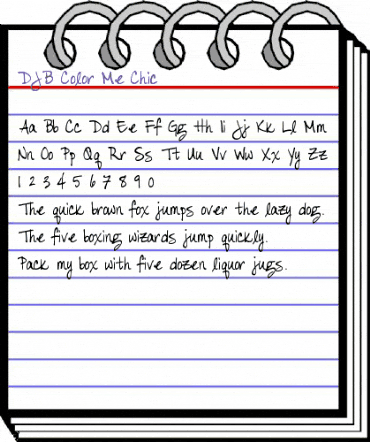 DJB Color Me Chic
Aa Bb Cc Dd Ee Ff Gg Hh Ii Jj Kk Ll Mm
Nn Oo Pp Qq Rr Ss Tt Uu Vv Ww Xx Yy Zz
1 2 3 4 5 6 7 8 9 0
The quick brown fox jumps over the lazy dog.
The five boxing wizards jump quickly.
Pack my box with five dozen liquor jugs.